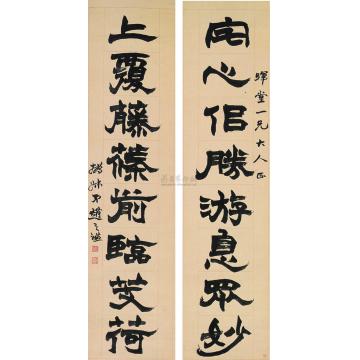 宅心侣勝游息眾妙
暉堂一兄大人正
上覆藤蓧前臨芰荷
撝叔弟趙之謙